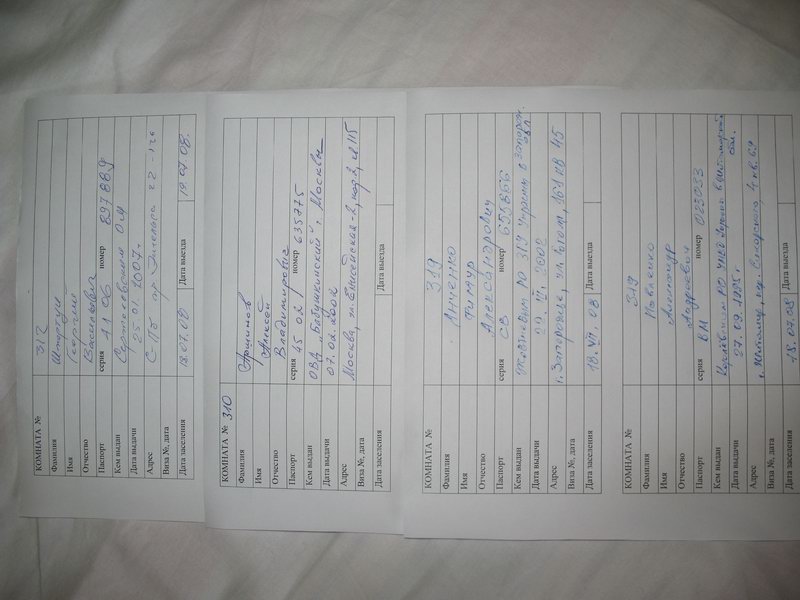 КОМНАТА № 312
Фамилия
Имя Георгий
Отчество Васильевич
Паспорт серия 41 06 номер 897889
Кем выдан Сертоловским О/М
Дата выдачи 25 01 2007г.
Адрес СПБ пр Энгельса
Виза №, дата
Дата заселения 18.07.08 Дата выезда 19.07.08.
КОМНАТА № 310
Фамилия Аршинов
Имя Алексей
Отчество Владимирович
Паспорт серия 45 02 номер 635775
Кем выдан ОВД „Бабушкинский" г. Москвы
Дата выдачи 07.02.2002
Адрес Москва, ул. Енисейская-2,
Виза №, дата
Дата заселения Дата выезда
КОМНАТА № 319
Фамилия Янченко
Имя Тимур
Отчество Александрович
Паспорт серия СВ номер 655866
Кем выдан Жовтневым РО ЗГУ Украины в Запорож. обл.
Дата выдачи VI. 2002
Адрес г. Запорожье, ул.
Виза №, дата
Дата заселения 18. VII. 08 Дата выезда
КОМНАТА № 319
Фамилия
Имя Александр
Отчество Андреевич
Паспорт серия ВМ номер 025033
Кем выдан РО УМВД Украины в Житомирской обл.
Дата выдачи 27.09.1995г
Адрес г. Житомир,
Виза №, дата
Дата заселения 18.07.08 Дата выезда